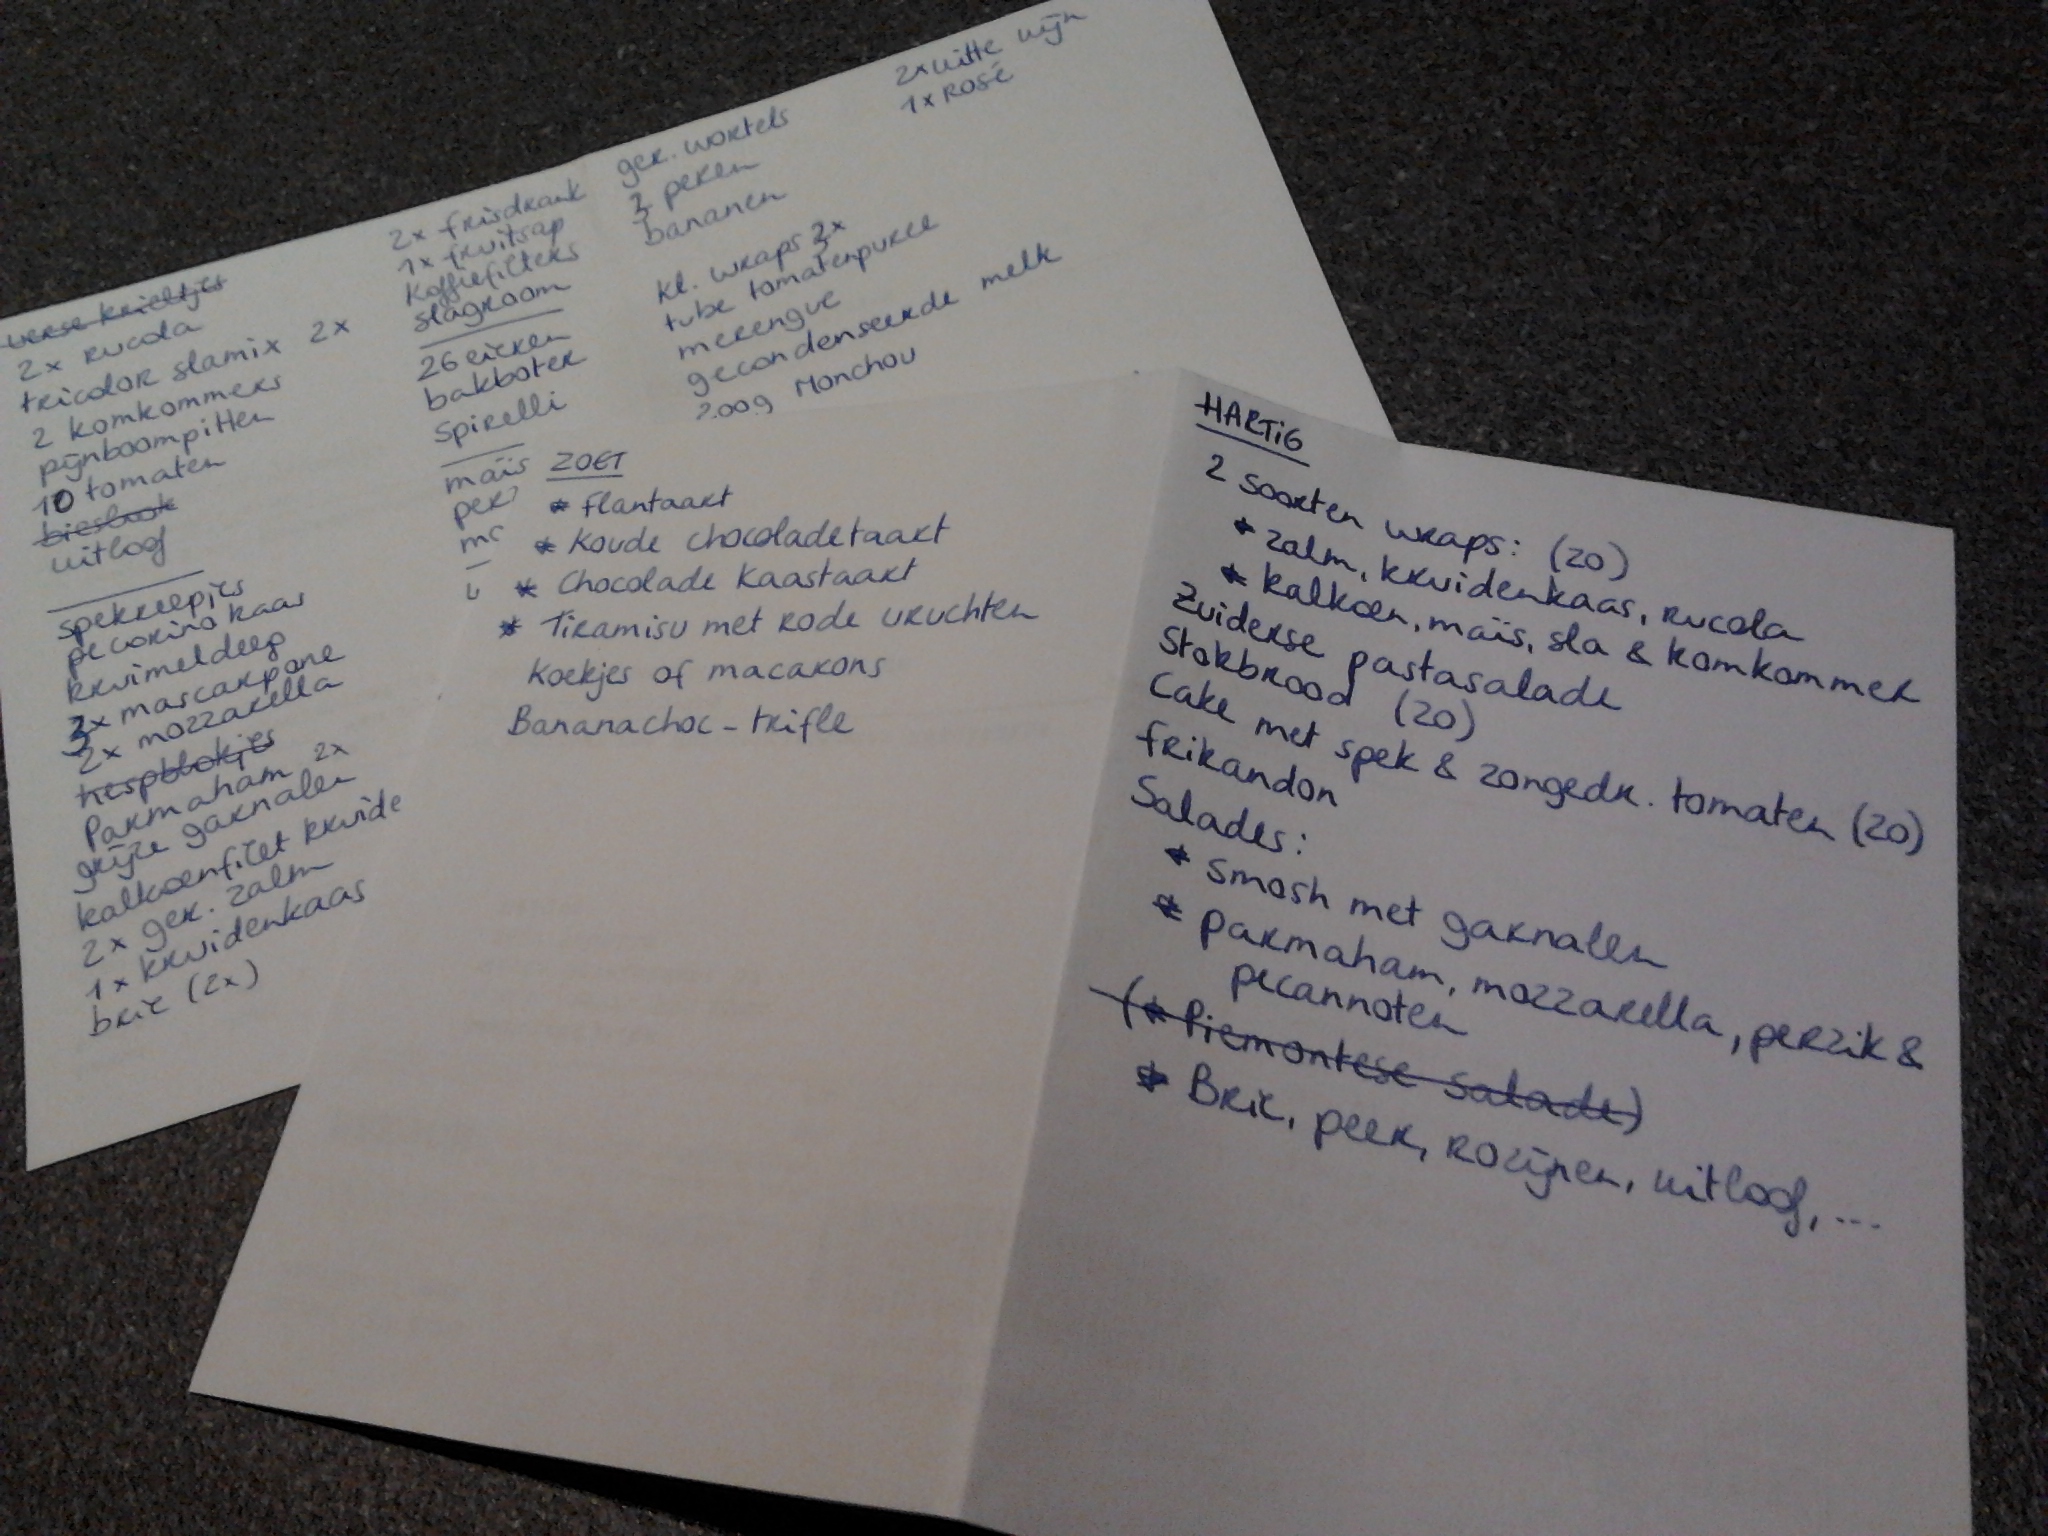 verse krieltjes
2x rucola
tricolor slamix 2x
2 komkommers
pijnboompitten
10 tomaten
bieslook
witloof
spekreepjes
pecorino kaas
kruimeldeeg
3x mascarpone
2x mozzarella
hespblokjes
Parmaham 2x
grijze garnalen
kalkoenfilet kruide
2x ger. zalm
1x kruidenkaas
brie (2x)
2x frisdrank
1x fruitsap
koffiefilters
slagroom
26 eieren
bakboter
spirelli
maïs
ger. wortels
peren
bananen
kl. wraps 2x
tube tomatenpuree
merengue
gecondenseerde melk
200g Monchou
2x witte wijn
1x Rosé
ZOET
* Flantaart
* Koude chocoladetaart
* Chocolade kaastaart
* Tiramisu met rode vruchten
Koekjes of macarons
Bananachoc - trifle
HARTiG
2 soorten wraps: (20)
* zalm, kruidenkaas, rucola
* kalkoen, maïs, sla & komkommer
Zuiderse pastasalade
Stokbrood (20)
Cake met spek & zongedr. tomaten (20)
frikandon
Salades:
* Smosh met garnalen
* parmaham, mozzarella, perzik &
pecannoten
(* Piemontese salade)
* Brie, peer, rozijnen, witloof, ...